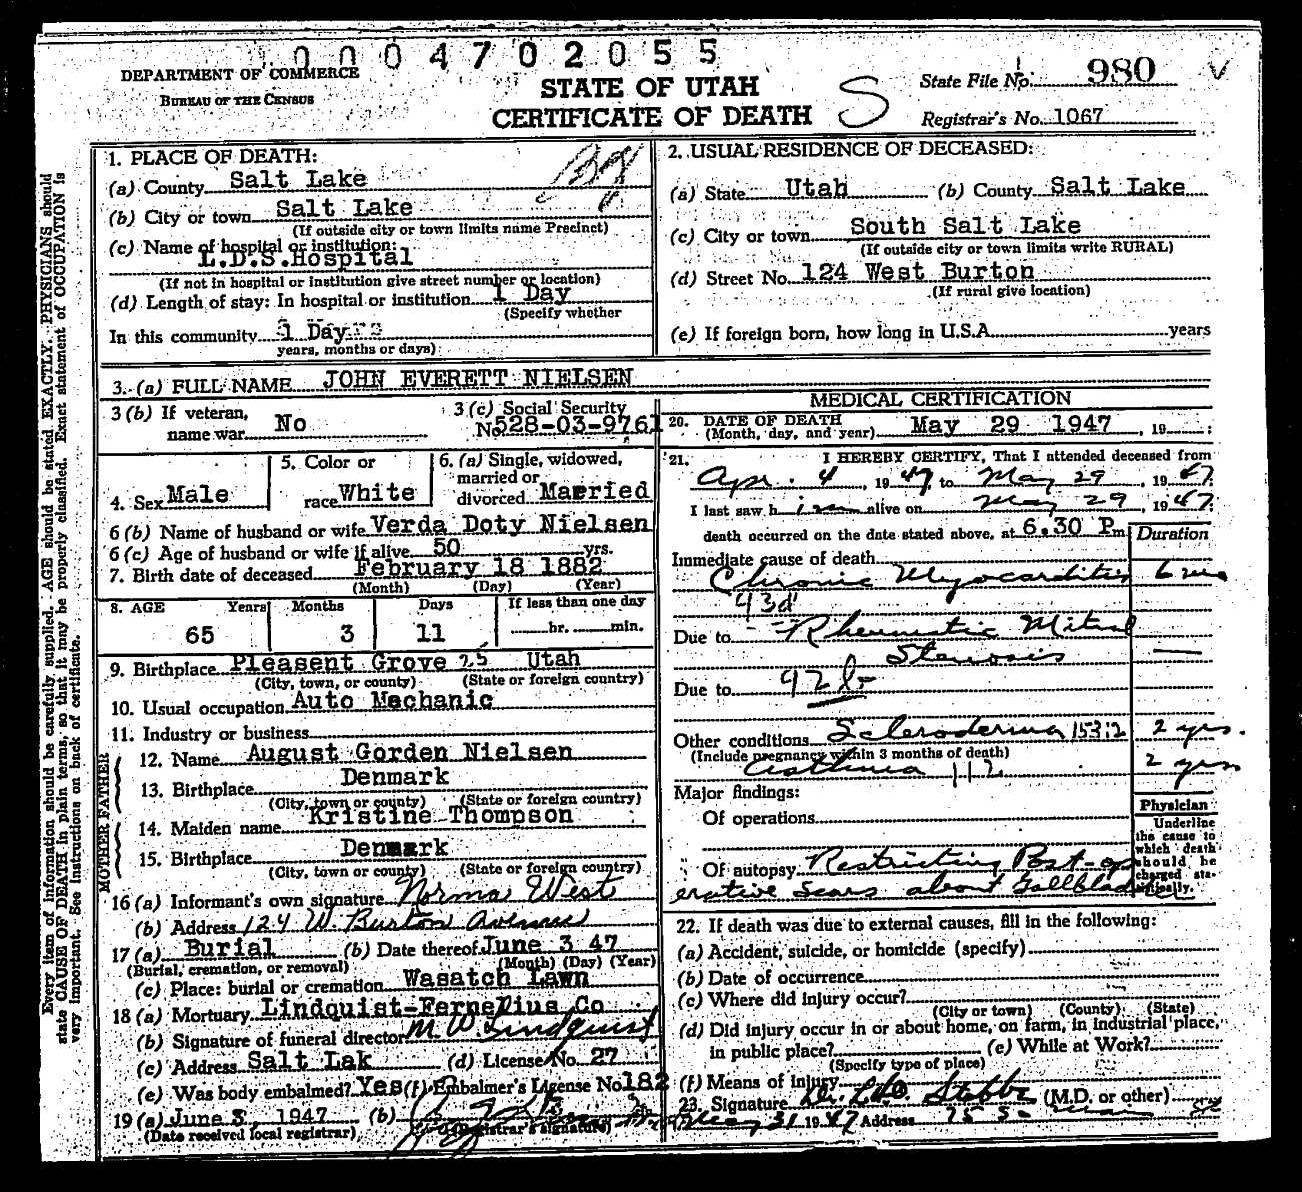 0004702055
DEPARTMENT OF COMMERCE
BUREAU OF THE CENSUS
STATE OF UTAH
CERTIFICATE OF DEATH
S
State File No. 980
Registrar's No. 1067
Every item of information should be carefully supplied. AGE should be stated EXACTLY. PHYSICIANS should
state CAUSE OF DEATH in plain terms, so that it may be properly classified. Exact statement of OCCUPATION is
very important. See instructions on back of certificate.
1. PLACE OF DEATH:
(a) County Salt Lake
(b) City or town Salt Lake
(If outside city or town limits name Precinct)
(c) Name of hospital or institution:
L.D.S. Hospital
(If not in hospital or institution give street number or location)
(d) Length of stay: In hospital or institution 1 Day
(Specify whether
In this community 1 Day
years, months or days)
2. USUAL RESIDENCE OF DECEASED:
(a) State Utah (b) County Salt Lake
(c) City or town South Salt Lake
(If outside city or town limits write RURAL)
(d) Street No. 124 West Burton
(If rural give location)
(e) If foreign born, how long in U.S.A. years
3. (a) FULL NAME JOHN EVERETT NIELSEN
3 (b) If veteran,
name war No
3 (c) Social Security
No. 528-03-9761
4. Sex Male
5. Color or
race White
6. (a) Single, widowed,
married or
divorced Married
6 (b) Name of husband or wife Verda Doty Nielsen
6 (c) Age of husband or wife if alive 50 yrs.
7. Birth date of deceased February 18 1882
(Month) (Day) (Year)
8. AGE Years Months Days If less than one day
65 3 11 hr. min.
9. Birthplace Pleasent Grove 25 Utah
(City, town, or county) (State or foreign country)
10. Usual occupation Auto Mechanic
11. Industry or business
FATHER
12. Name August Gorden Nielsen
13. Birthplace Denmark
(City, town or county) (State or foreign country)
MOTHER
14. Maiden name Kristine Thompson
15. Birthplace Denmark
(City, town or county) (State or foreign country)
16 (a) Informant's own signature Norma West
(b) Address 124 W. Burton Avenue
17 (a) Burial (b) Date thereof June 3 47
(Burial, cremation, or removal) (Month) (Day) (Year)
(c) Place: burial or cremation Wasatch Lawn
18 (a) Mortuary Lindquist-Fernelius Co
(b) Signature of funeral director M. W. Lindquist
(c) Address Salt Lak (d) License No. 27
(e) Was body embalmed? Yes (f) Embalmer's License No. 182
19 (a) June 3, 1947 (b)
(Date received local registrar) (Registrar's signature)
MEDICAL CERTIFICATION
20. DATE OF DEATH
(Month, day, and year) May 29 1947, 19 ;
21. I HEREBY CERTIFY, That I attended deceased from
Apr. 4, 1947, to May 29, 1947.
I last saw him alive on May 29, 1947.
death occurred on the date stated above, at 6.30 P m
Duration
Immediate cause of death
Chronic Myocarditis 6 mo
93d
Due to Rheumatic Mitral
Stenosis
Due to 92b
Other conditions Scleroderma 153:2 2 yrs.
(Include pregnancy within 3 months of death)
Asthma 112 2 yrs
Major findings:
Of operations
Of autopsy Restricting Post-op
erative scars about Gallbladder
Physician
Underline
the cause to
which death
should be
charged sta-
tistically.
22. If death was due to external causes, fill in the following:
(a) Accident, suicide, or homicide (specify)
(b) Date of occurrence
(c) Where did injury occur?
(City or town) (County) (State)
(d) Did injury occur in or about home, on farm, in industrial place,
in public place? (e) While at Work?
(Specify type of place)
(f) Means of injury
23. Signature Dr. Stobbe (M.D. or other)
May 31 1947 Address